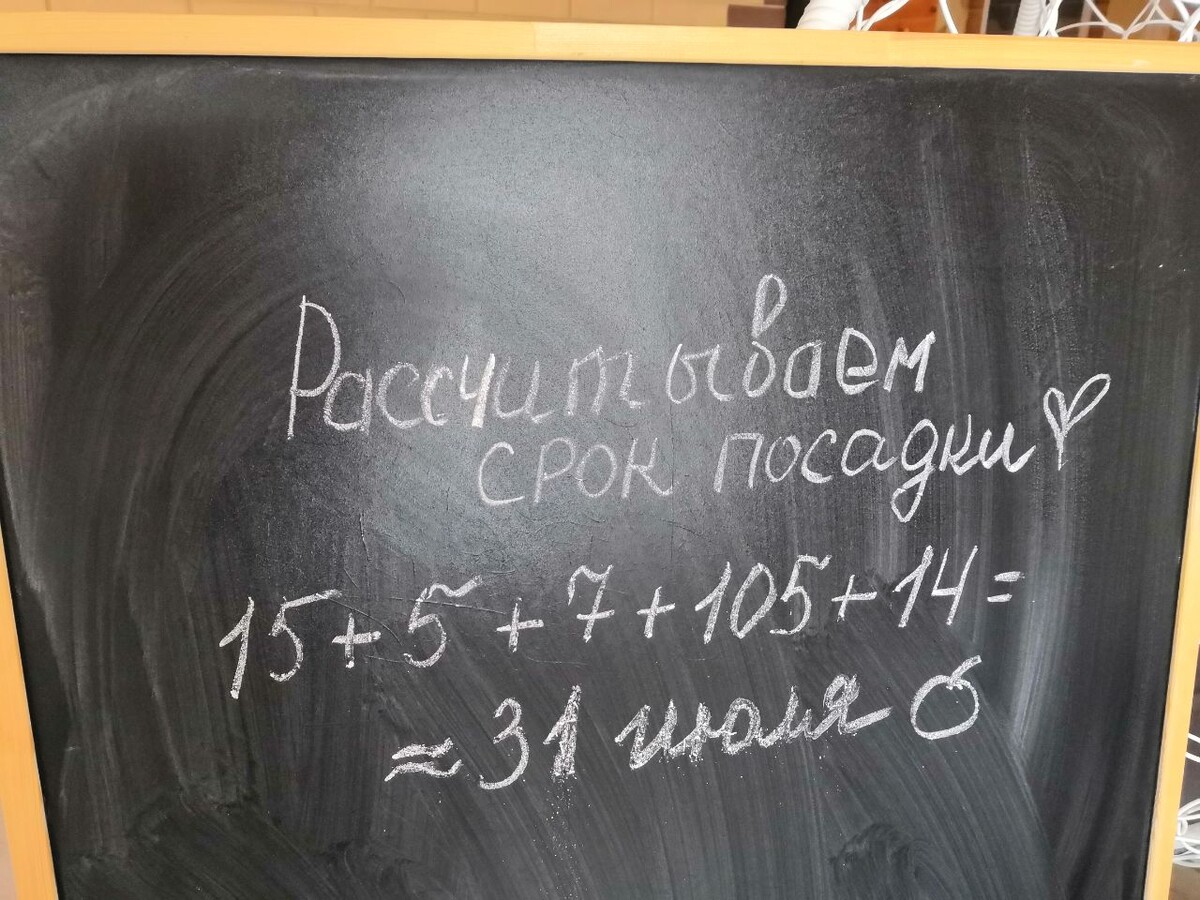 Рассчитываем
срок посадки
15+5+7+105+14=
≈31 июля